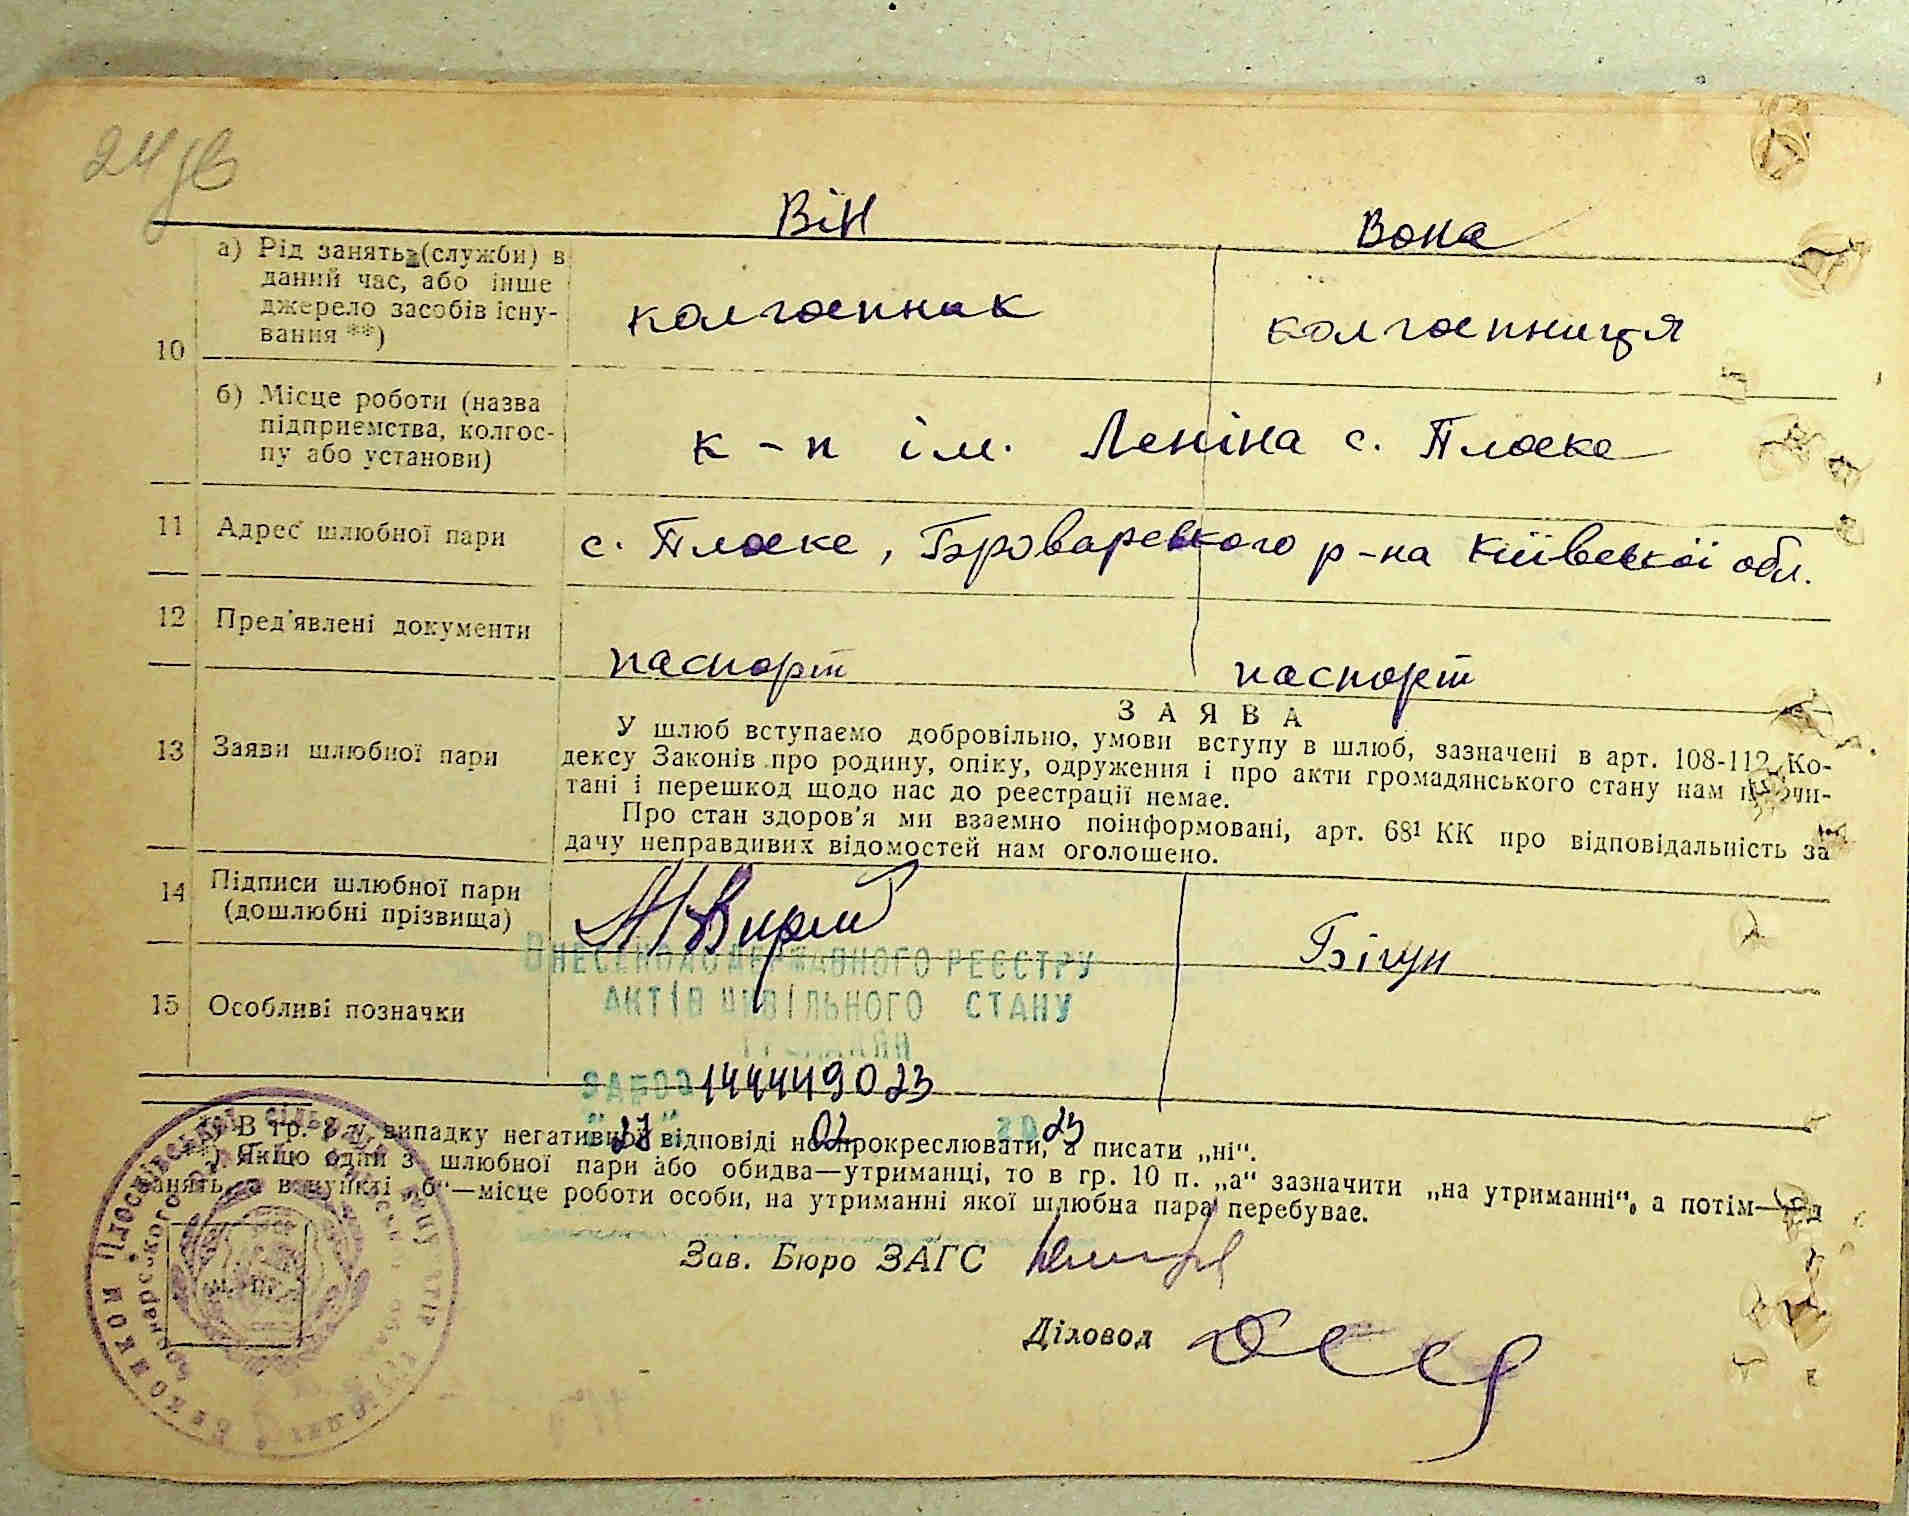 24зв
Він Вона
10 а) Рід занять (служби) в даний час, або інше джерело засобів існування **) колгоспник колгоспниця
б) Місце роботи (назва підприємства, колгоспу або установи) к-п ім. Леніна с. Плоске
11 Адрес шлюбної пари с. Плоске, Броварського р-на Київської обл.
12 Пред'явлені документи паспорт паспорт
13 Заяви шлюбної пари
ЗАЯВА
У шлюб вступаємо добровільно, умови вступу в шлюб, зазначені в арт. 108-112 Ко-
дексу Законів про родину, опіку, одруження і про акти громадянського стану нам прочи-
тані і перешкод щодо нас до реєстрації немає.
Про стан здоров'я ми взаємно поінформовані, арт. 68¹ КК про відповідальність за
дачу неправдивих відомостей нам оголошено.
14 Підписи шлюбної пари (дошлюбні прізвища) Бігун
15 Особливі позначки
ВНЕСЕНО ДО ДЕРЖАВНОГО РЕЄСТРУ
АКТІВ ЦИВІЛЬНОГО СТАНУ
ГРОМАДЯН
ЗА №00144449023
"27" 02 2023
*) В гр. 8 у випадку негативної відповіді не прокреслювати, а писати „ні“.
**) Якщо один з шлюбної пари або обидва—утриманці, то в гр. 10 п. „а“ зазначити „на утриманні“, а потім—рід
занять, а в пункті „б“—місце роботи особи, на утриманні якої шлюбна пара перебуває.
Зав. Бюро ЗАГС
Діловод